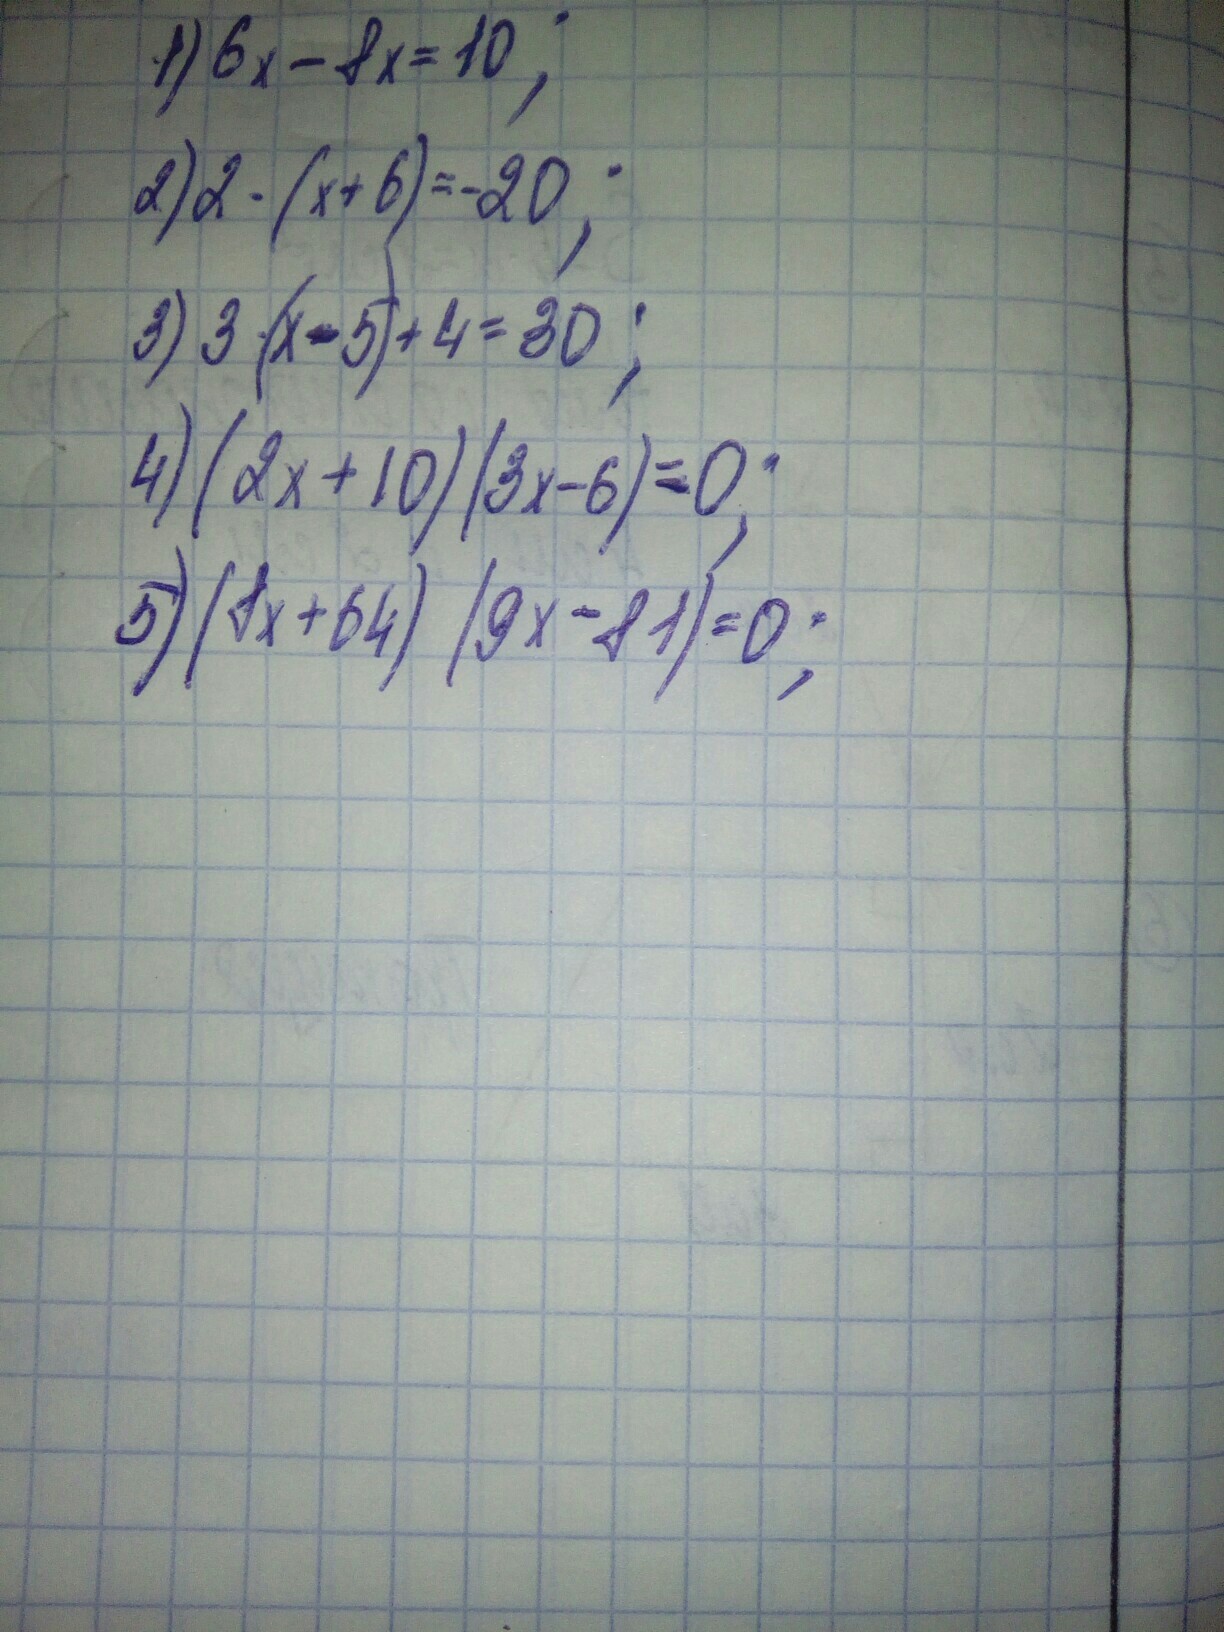 1) 6x - 8x = 10;
2) 2 · (x + 6) = -20;
3) 3 · (x - 5) + 4 = 30;
4) (2x + 10) (3x - 6) = 0;
5) (8x + 64) (9x - 81) = 0;